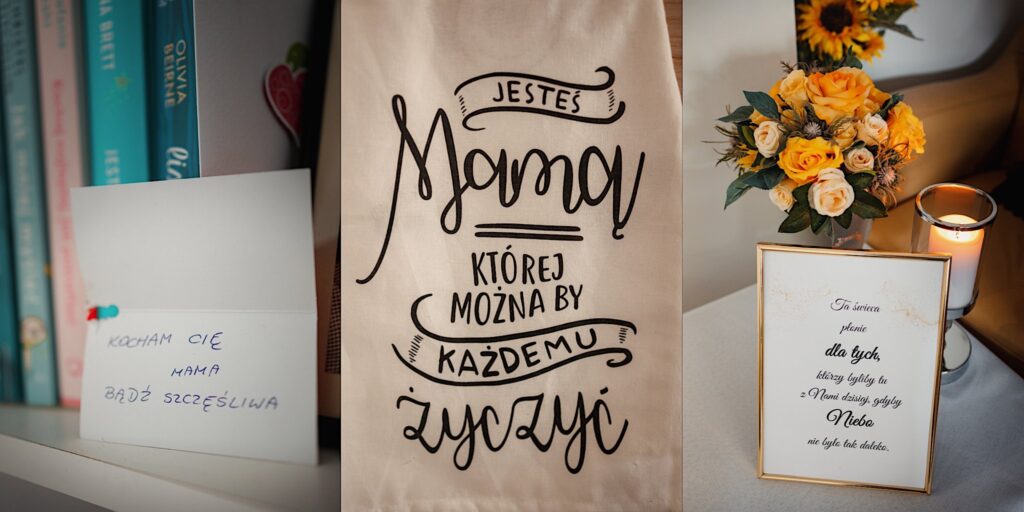 A BRETT
JEST
OLIVIA
BEIRNE
KOCHAM CIĘ
MAMA
BĄDŹ SZCZĘŚLIWA
JESTEŚ
Mamą
KTÓREJ
MOŻNA BY
KAŻDEMU
życzyć
Ta świeca
płonie
dla tych,
którzy byliby tu
z Nami dzisiaj, gdyby
Niebo
nie było tak daleko.